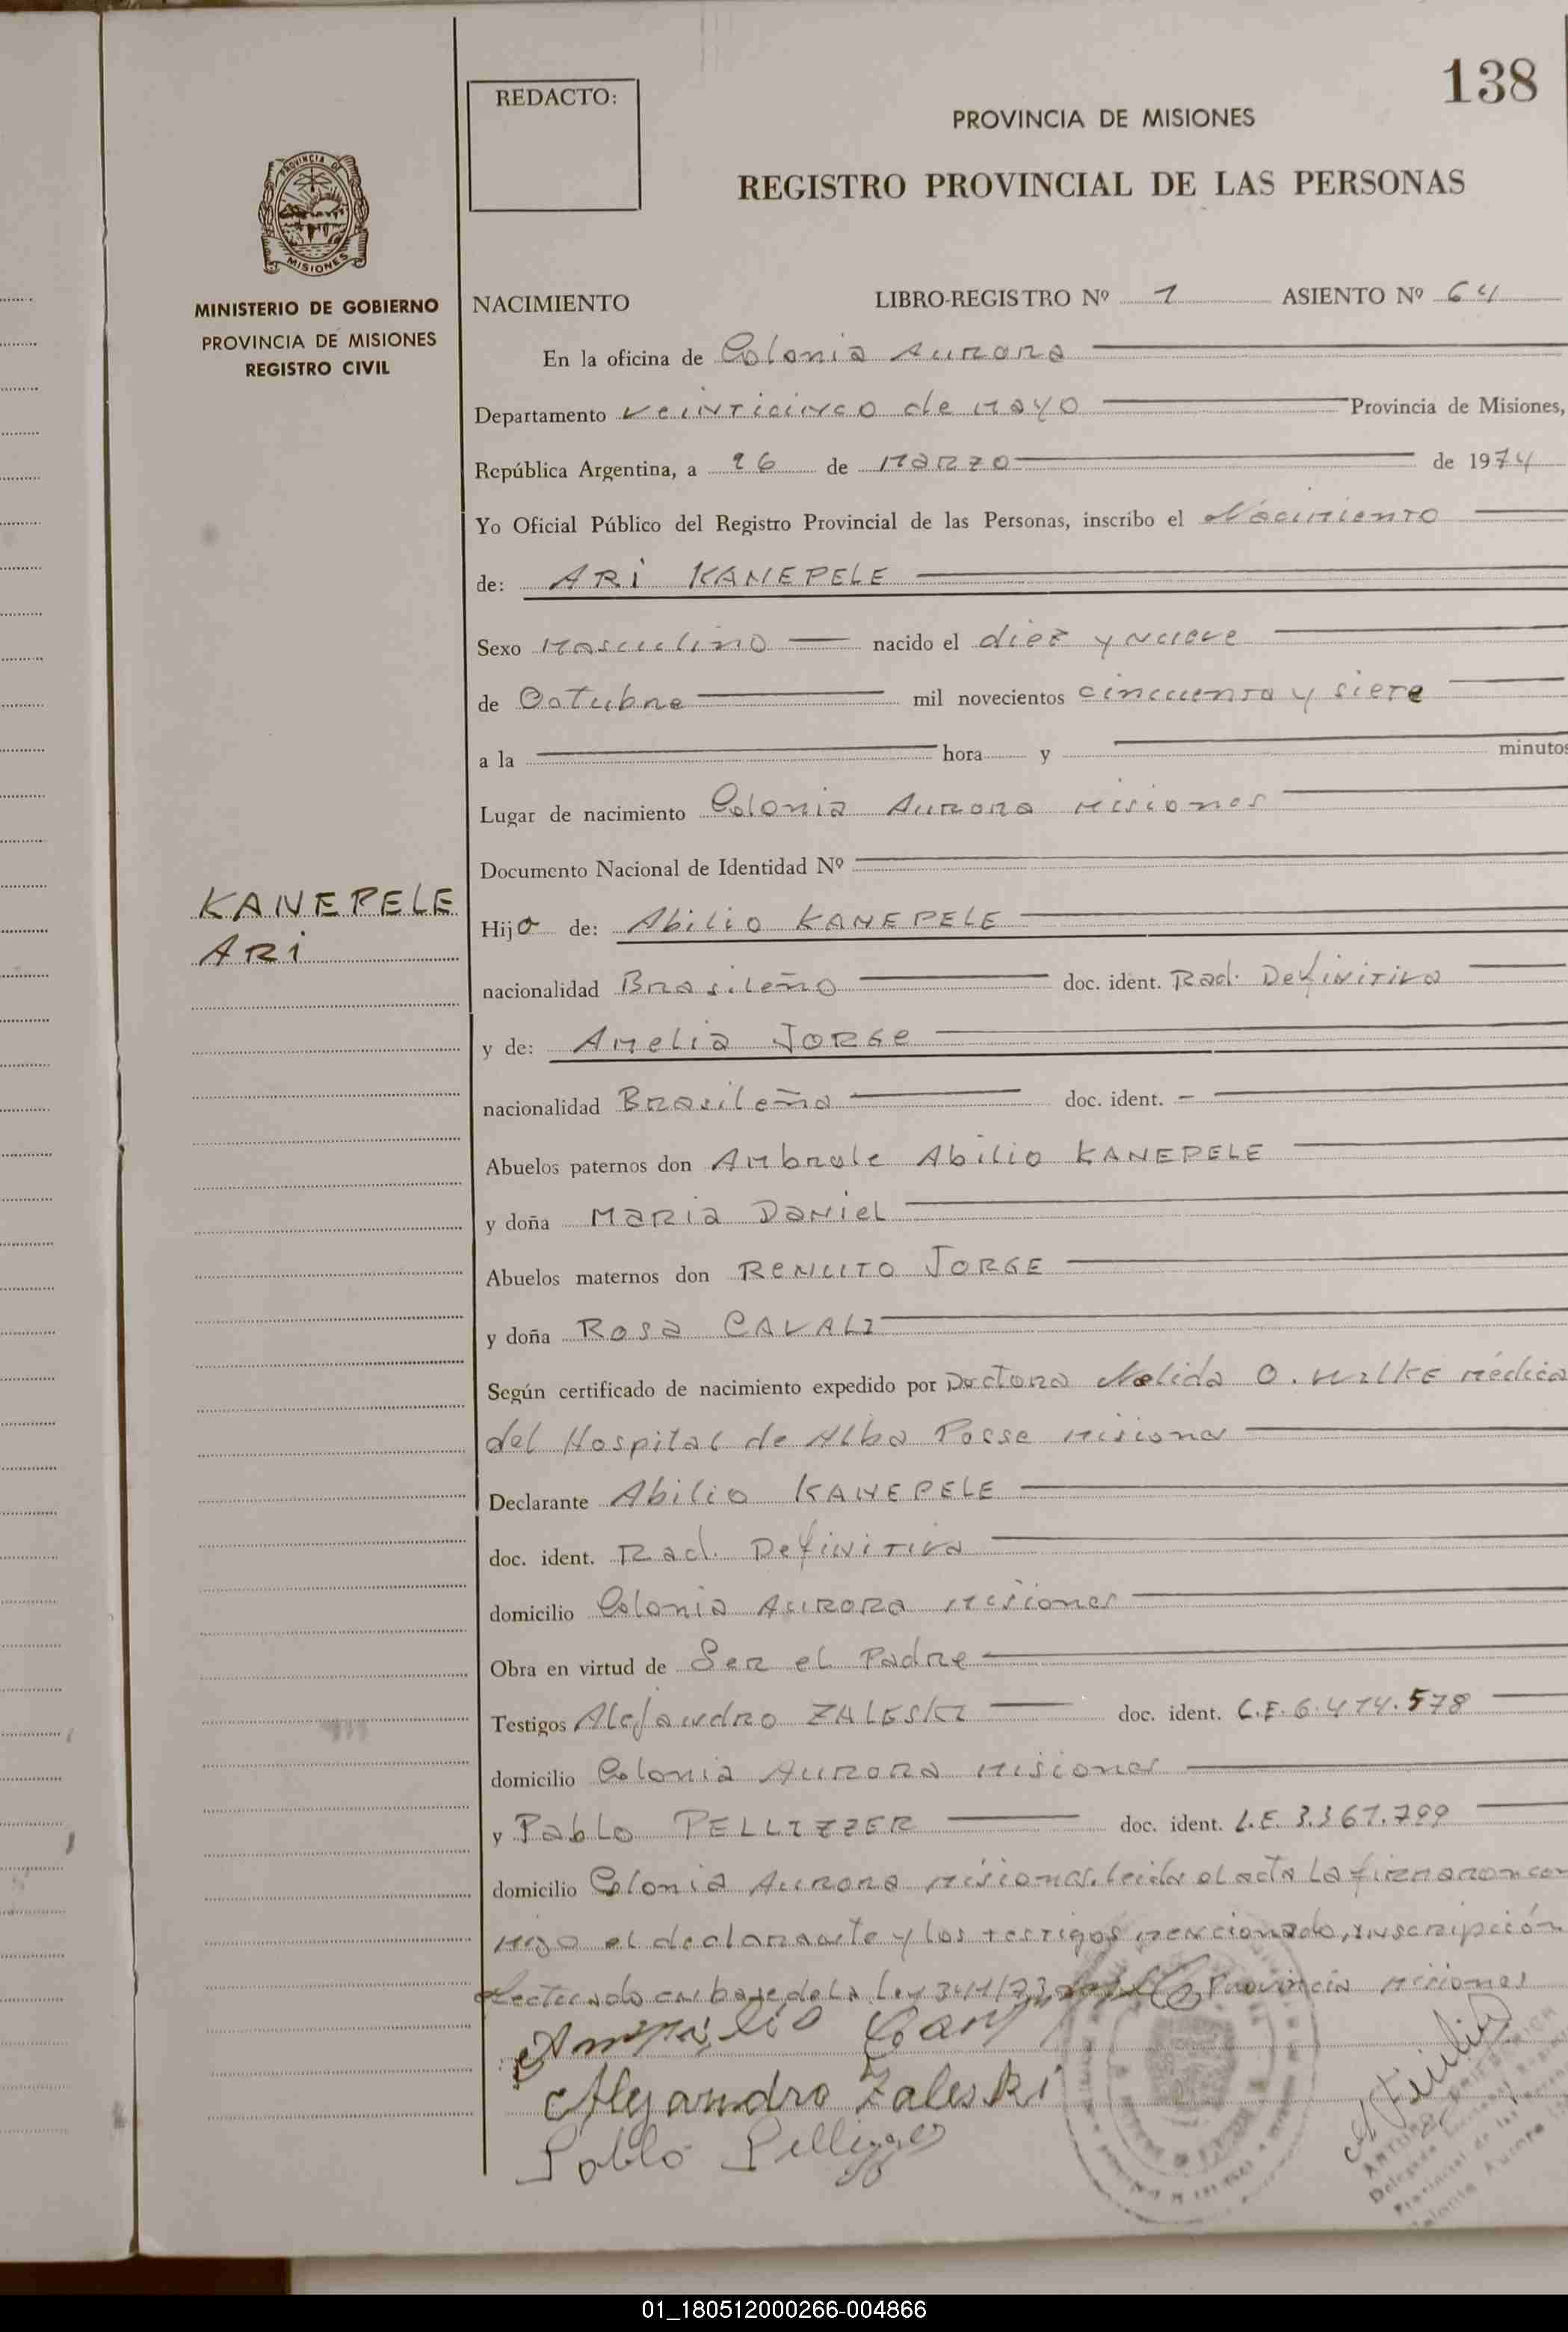 138
REDACTO:
PROVINCIA DE MISIONES
REGISTRO PROVINCIAL DE LAS PERSONAS
PROVINCIA DE
MISIONES
MINISTERIO DE GOBIERNO
PROVINCIA DE MISIONES
REGISTRO CIVIL
NACIMIENTO LIBRO-REGISTRO Nº 1 ASIENTO Nº 64
En la oficina de Colonia Aurora
Departamento veinticinco de Mayo Provincia de Misiones,
República Argentina, a 26 de Marzo de 1974
Yo Oficial Público del Registro Provincial de las Personas, inscribo el Nacimiento
de: ARI KANEPELE
Sexo Masculino nacido el diez y nueve
de Octubre mil novecientos cincuenta y siete
a la hora y minutos
Lugar de nacimiento Colonia Aurora Misiones
Documento Nacional de Identidad Nº
KANEPELE
ARI
Hijo de: Abilio KANEPELE
nacionalidad Brasileño doc. ident. Rad. Definitiva
y de: Amelia JORGE
nacionalidad Brasileña doc. ident. -
Abuelos paternos don Abilio KANEPELE
y doña MARIA DANIEL
Abuelos maternos don RENUTO JORGE
y doña ROSA CAVALI
Según certificado de nacimiento expedido por Doctora Nelida O. WILKE médica
del Hospital de Alba Posse Misiones
Declarante Abilio KANEPELE
doc. ident. Rad. Definitiva
domicilio Colonia Aurora Misiones
Obra en virtud de Ser el Padre
Testigos Alejandro ZALESKI doc. ident. C.E. 6.474.578
domicilio Colonia Aurora Misiones
y Pablo PELLIZZER doc. ident. L.E. 3.367.799
domicilio Colonia Aurora Misiones. leida el acta la firmaron con
migo el declarante y los testigos mencionado, inscripción
efectuado en base de la Ley 341/73 Provincia Misiones
Alejandro Zaleski
Pablo Pellizzer
Provincial de las
Colonia Aurora
01_180512000266-004866